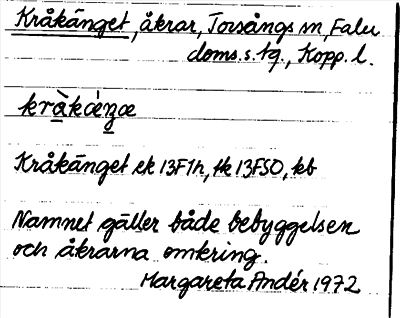 Kråkänget, åkrar, Torsångs sn, Falu
doms.s. tg., Kopp. l.
kràkæ̀ŋæ
Kråkänget ek 13F1h, fk 13F50, kb
Namnet gäller både bebyggelsen
och åkrarna omkring.
Margareta Andér 1972